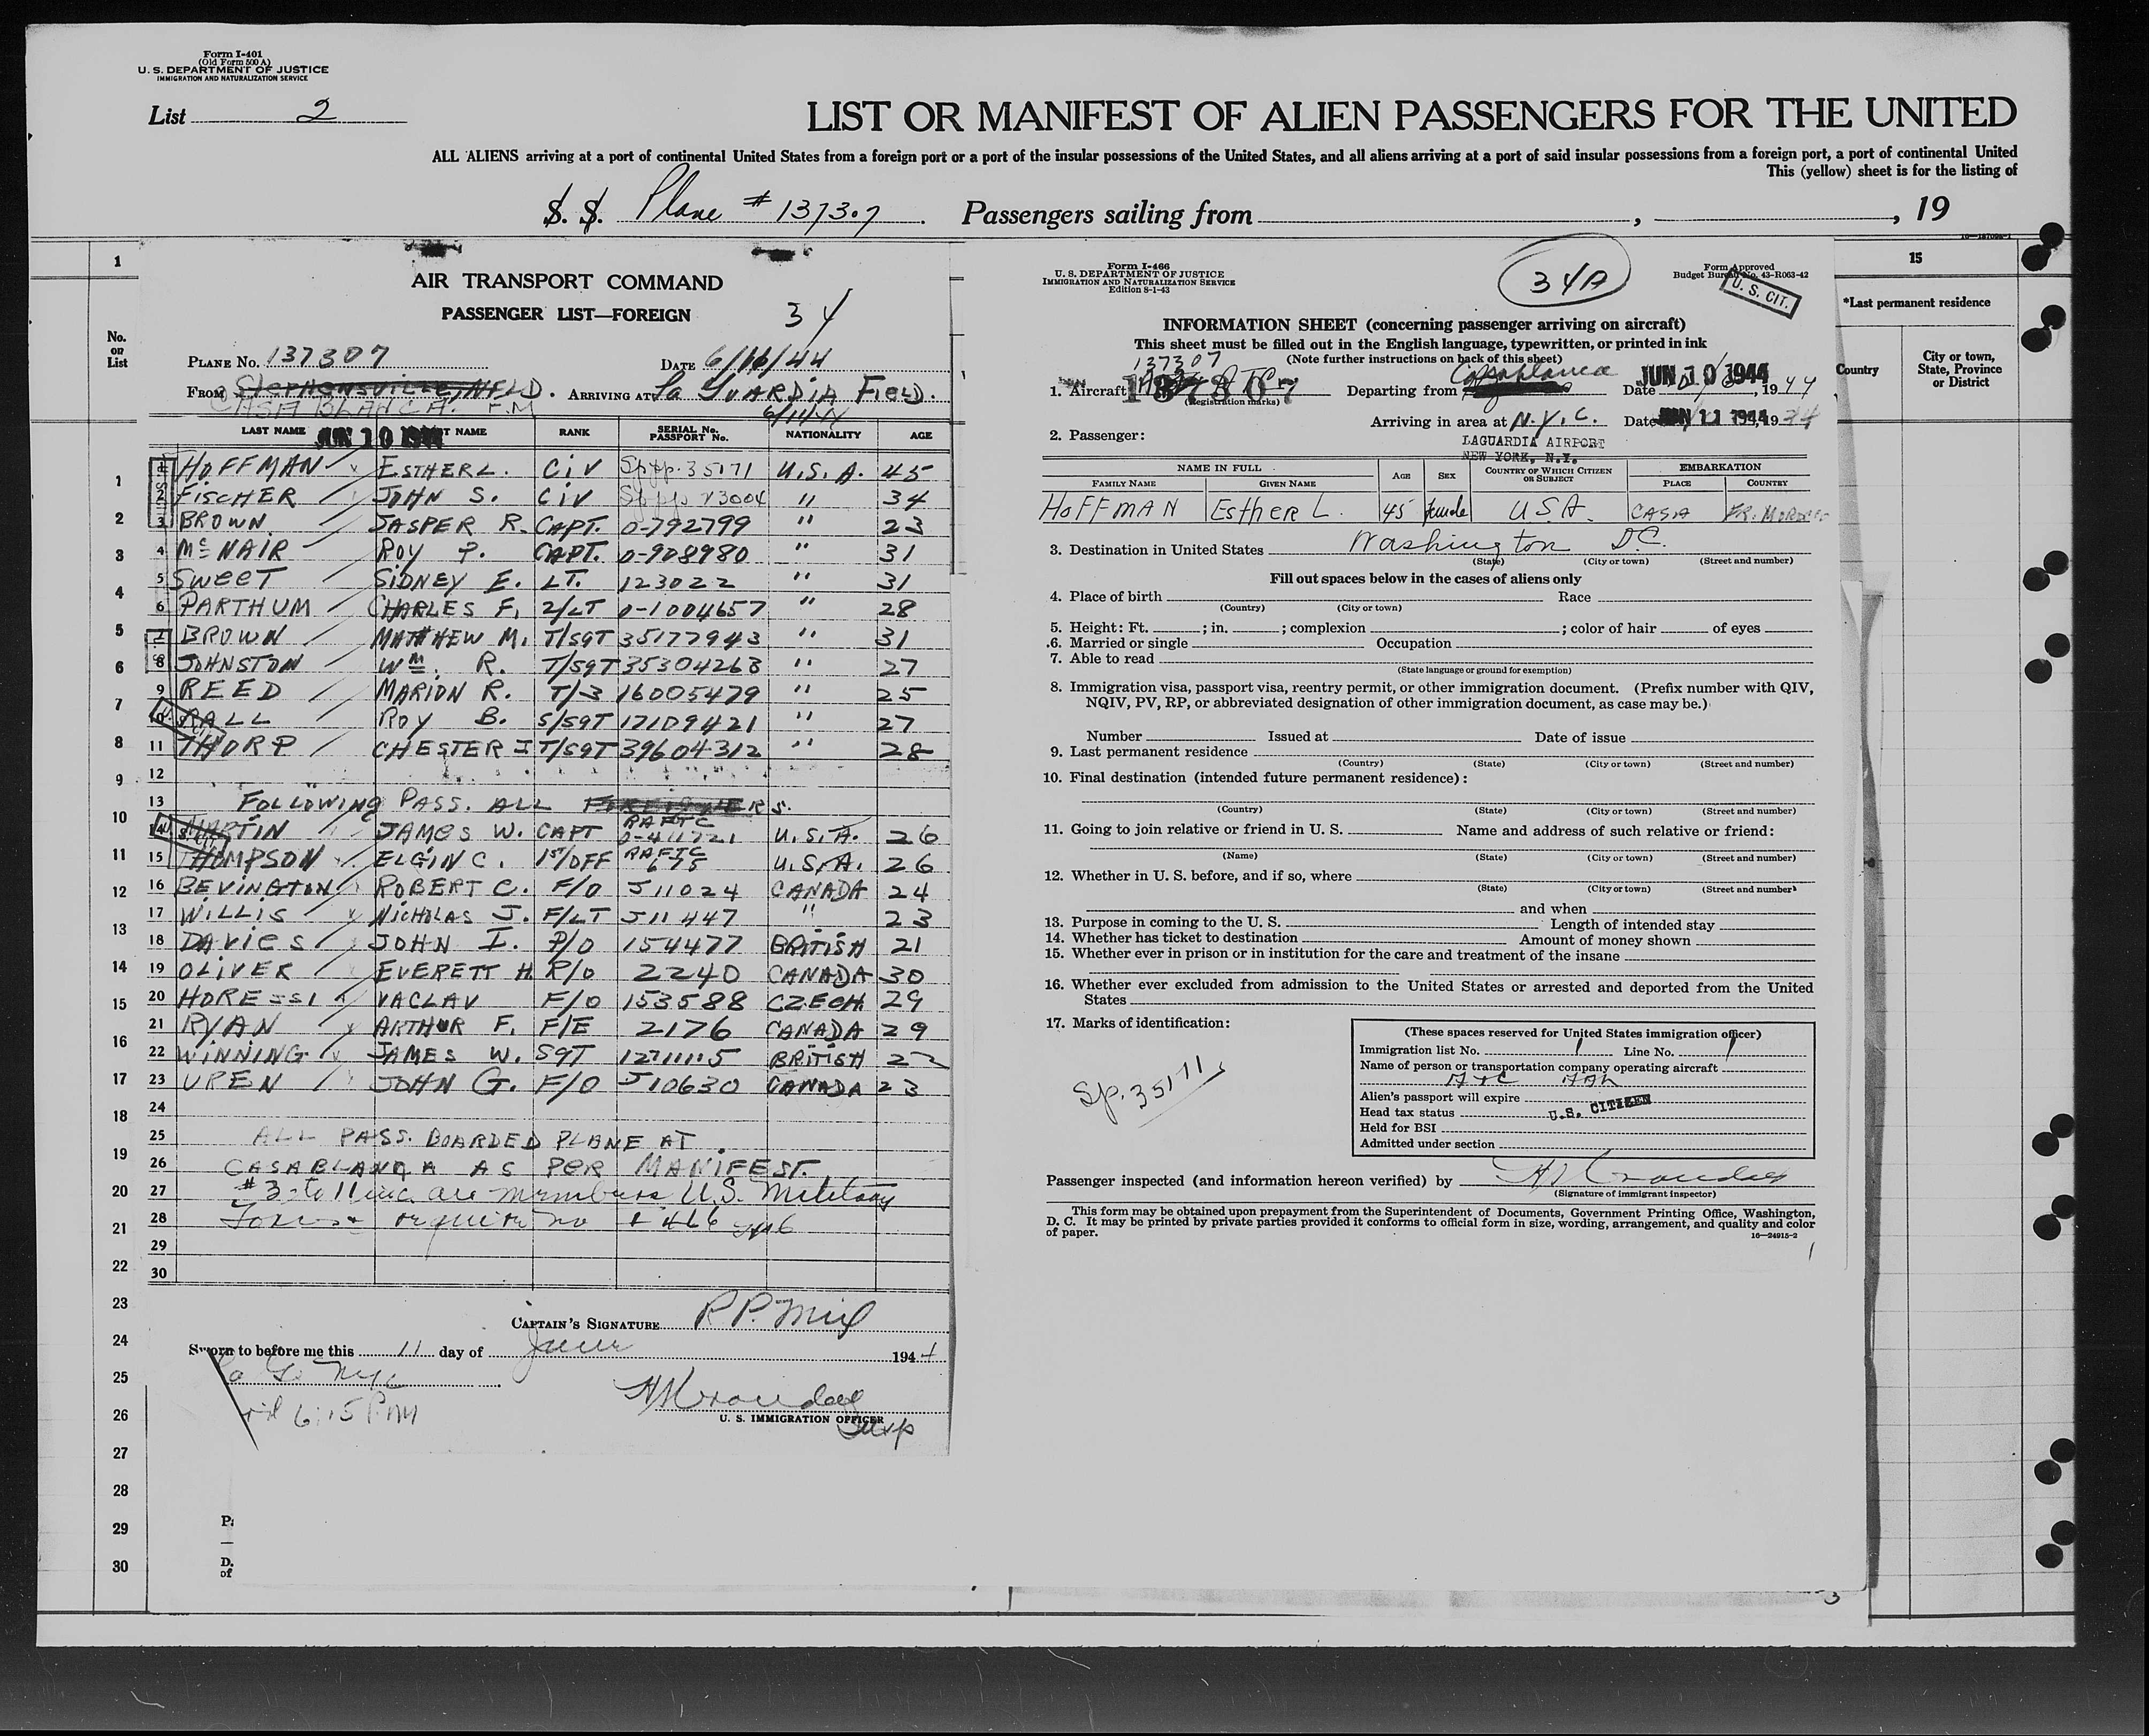 Form I-401
(Old Form 500 A)
U. S. DEPARTMENT OF JUSTICE
IMMIGRATION AND NATURALIZATION SERVICE
List 2
LIST OR MANIFEST OF ALIEN PASSENGERS FOR THE UNITED
ALL ALIENS arriving at a port of continental United States from a foreign port or a port of the insular possessions of the United States, and all aliens arriving at a port of said insular possessions from a foreign port, a port of continental United
This (yellow) sheet is for the listing of
S. S. Plane # 137307 Passengers sailing from , , 19
1
No. on List
AIR TRANSPORT COMMAND
PASSENGER LIST—FOREIGN
34
PLANE No. 137307 DATE 6/11/44
FROM Stephensville, NFLD. ARRIVING AT La GUARDIA FIELD.
CASA BLANCA. F.M 6/11/44
LAST NAME JUN 10 1944 NAME RANK SERIAL No. PASSPORT No. NATIONALITY AGE
HOFFMAN ESTHER L. CIV Sp.pp. 35171 U.S.A. 45
2 FISCHER JOHN S. CIV 23004 " 34
3 BROWN JASPER R. CAPT. 0-792799 " 23
4 McNAIR ROY P. CAPT. 0-908980 " 31
5 SWEET SIDNEY E. LT. 123022 " 31
6 PARTHUM CHARLES F. 2/LT 0-1004657 " 28
BROWN MATTHEW M. T/SGT 35177943 " 31
8 JOHNSTON Wm. R. T/SGT 35304263 " 27
9 REED MARION R. T/3 16005479 " 25
RALL ROY B. S/SGT 17109421 " 27
11 THORP CHESTER I T/SGT 39604312 " 28
12
13 FOLLOWING PASS. ALL FOREIGNERS.
14 MARTIN JAMES W. CAPT RAFTC 0-411721 U.S.A. 26
15 THOMPSON ELGIN C. 1st/OFF RAFTC 675 U.S.A. 26
16 BEVINGTON ROBERT C. F/O J11024 CANADA 24
17 WILLIS NICHOLAS J. F/LT J11447 " 23
18 DAVIES JOHN I. P/O 154477 BRITISH 21
19 OLIVER EVERETT H R/O 2240 CANADA 30
20 HORESSI VACLAV F/O 153588 CZECH. 29
21 RYAN ARTHUR F. F/E 2176 CANADA 29
22 WINNING JAMES W. SGT BRITISH 22
23 UREN JOHN G. F/O J10630 CANADA 23
24
25 ALL PASS. BOARDED PLANE AT
26 CASABLANCA AS PER MANIFEST.
27 #3 to 11 inc. are members U.S. Military
28 Forces & require no I 466
29
30
CAPTAIN'S SIGNATURE
Sworn to before me this 11 day of June 1944
La G. NYC
6:15 PM
U. S. IMMIGRATION OFFICER
1
2
3
4
5
6
7
8
9
10
11
12
13
14
15
16
17
18
19
20
21
22
23
24
25
26
27
28
29
30
D.
of
Form I-466
U. S. DEPARTMENT OF JUSTICE
IMMIGRATION AND NATURALIZATION SERVICE
Edition 8-1-43
34A
Form Approved
Budget Bureau No. 43-R063-42
U. S. CIT.
INFORMATION SHEET (concerning passenger arriving on aircraft)
This sheet must be filled out in the English language, typewritten, or printed in ink
(Note further instructions on back of this sheet)
137307
1. Aircraft 137307 Departing from Casablanca Date JUN 10 1944, 1944
(Registration marks)
Arriving in area at N.Y.C. Date JUN 11 1944, 1944
LAGUARDIA AIRPORT
NEW YORK, N.Y.
2. Passenger:
NAME IN FULL AGE SEX COUNTRY OF WHICH CITIZEN OR SUBJECT EMBARKATION
FAMILY NAME GIVEN NAME PLACE COUNTRY
HOFFMAN Esther L. 45 female U.S.A. CASA FR. MOROCCO
3. Destination in United States Washington D.C.
(State) (City or town) (Street and number)
Fill out spaces below in the cases of aliens only
4. Place of birth Race
(Country) (City or town)
5. Height: Ft. ; in. ; complexion ; color of hair of eyes
6. Married or single Occupation
7. Able to read
(State language or ground for exemption)
8. Immigration visa, passport visa, reentry permit, or other immigration document. (Prefix number with QIV,
NQIV, PV, RP, or abbreviated designation of other immigration document, as case may be.)
Number Issued at Date of issue
9. Last permanent residence
(Country) (State) (City or town) (Street and number)
10. Final destination (intended future permanent residence):
(Country) (State) (City or town) (Street and number)
11. Going to join relative or friend in U. S. Name and address of such relative or friend:
(Name) (State) (City or town) (Street and number)
12. Whether in U. S. before, and if so, where
(State) (City or town) (Street and number)
and when
13. Purpose in coming to the U. S. Length of intended stay
14. Whether has ticket to destination Amount of money shown
15. Whether ever in prison or in institution for the care and treatment of the insane
16. Whether ever excluded from admission to the United States or arrested and deported from the United
States
17. Marks of identification:
Sp. 35171
(These spaces reserved for United States immigration officer)
Immigration list No. 1 Line No. 1
Name of person or transportation company operating aircraft
ATC
Alien's passport will expire
Head tax status U.S. CITIZEN
Held for BSI
Admitted under section
Passenger inspected (and information hereon verified) by
(Signature of immigrant inspector)
This form may be obtained upon prepayment from the Superintendent of Documents, Government Printing Office, Washington,
D. C. It may be printed by private parties provided it conforms to official form in size, wording, arrangement, and quality and color
of paper. 16—24915-2
1
15
*Last permanent residence
Country
City or town, State, Province or District